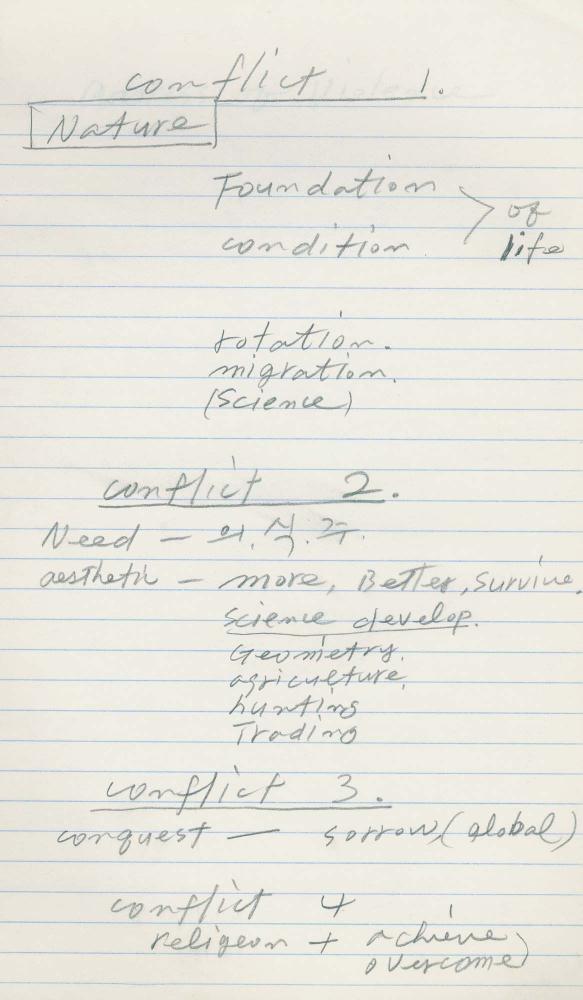 conflict 1.
Nature
Foundation
condition > of life
rotation.
migration.
(Science)
conflict 2.
Need — 의.식.주.
aesthetic — more, Better, Survive.
Science develop.
Geometry.
agriculture,
hunting
Trading
conflict 3.
conquest — sorrow (global)
conflict 4
religeon + achieve
overcome)